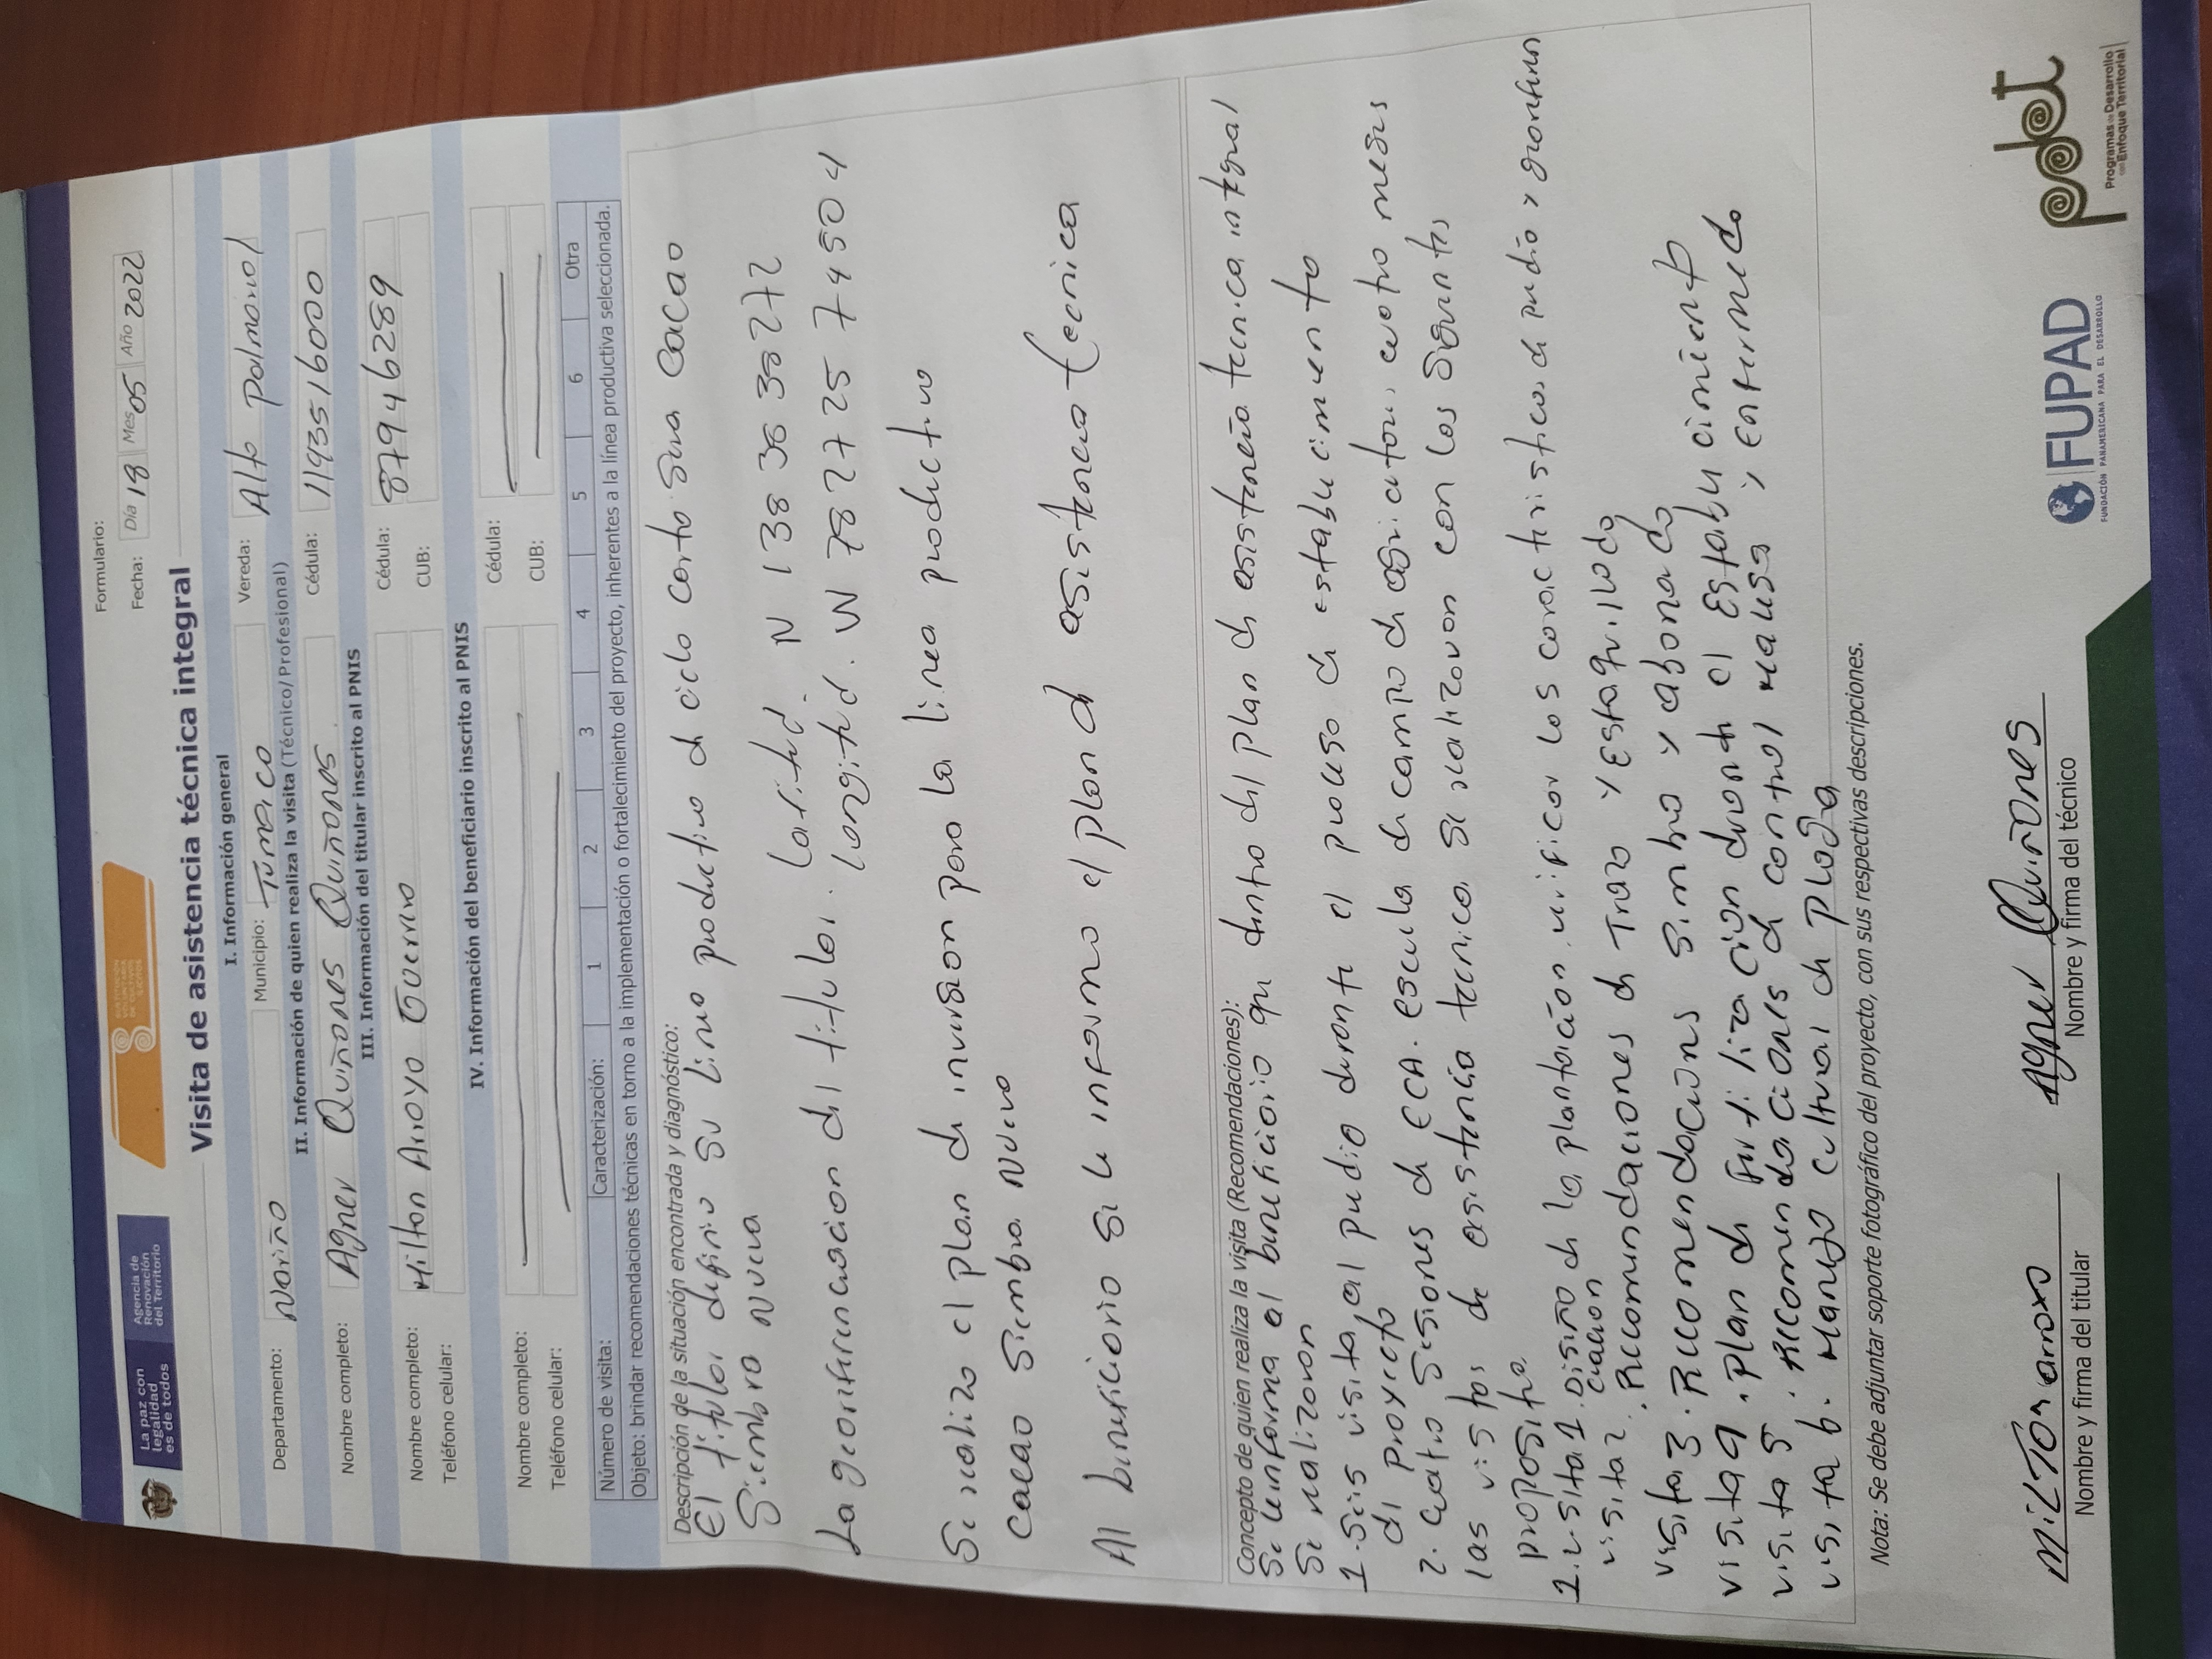 La paz con
legalidad
es de todos
Agencia de
Renovación
del Territorio
Formulario:
Fecha: Día 18 Mes 05 Año 2022
Visita de asistencia técnica integral
I. Información general
Departamento: Nariño Municipio: Tumaco Vereda: Alto palmarial
II. Información de quien realiza la visita (Técnico/Profesional)
Nombre completo: Agner Quiñones Quiñones Cédula: 1193516000
III. Información del titular inscrito al PNIS
Nombre completo: Milton Arroyo Guerrero Cédula: 87946289
Teléfono celular: CUB:
IV. Información del beneficiario inscrito al PNIS
Nombre completo: Cédula:
Teléfono celular: CUB:
Número de visita: Caracterización: 1 2 3 4 5 6 Otra
Objeto: brindar recomendaciones técnicas en torno a la implementación o fortalecimiento del proyecto, inherentes a la línea productiva seleccionada.
Descripción de la situación encontrada y diagnóstico:
El titular definio su linea productiva de ciclo corto sera Cacao
Siembra nueva
La georeferenciacion del titular. Latitud. N 138 36 38272
Longitud. W 7827 25 74504
Se realizo el plan de inversion para la linea productiva
Cacao Siembra Nueva
Al beneficiario se le informo el plan de asistencia tecnica
Concepto de quien realiza la visita (Recomendaciones):
Se le informa al beneficiario que dentro del plan de asistencia tecnica integral
Se realizaran
1 Seis visita al predio durante el proceso de establecimiento
del proyecto
2. Cuatro Sesiones de ECA. escuela de campo de agricultores cuatro meses
las visitas de asistencia tecnica se realizaran con los siguientes
proposito.
1. visita 1. Diseño de la plantacion. verificar las caracteristicas de predio y
visita 2. Recomendaciones de Trazo y Estaquillado
visita 3. Recomendaciones Siembra y abonado
visita 4. Plan de fertilizacion durante el Establecimiento
visita 5. Recomendaciones de control maleza y enfermedad
visita 6. Manejo cultural de plaga
Nota: Se debe adjuntar soporte fotográfico del proyecto, con sus respectivas descripciones.
Milton arroyo Agner Quiñones
Nombre y firma del titular Nombre y firma del técnico
FUPAD
FUNDACIÓN PANAMERICANA PARA EL DESARROLLO
pdet
Programas de Desarrollo
con Enfoque Territorial